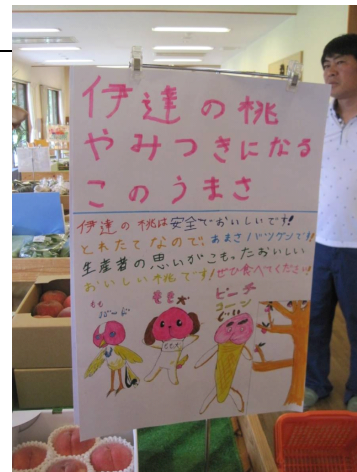 伊達の桃
やみつきになる
このうまさ
伊達の桃は安全でおいしいです!!
とれたてなので、あまさバツグンです!!
生産者の思いがこもったおいしい
おいしい桃です!ぜひ食べてください!
もも
バード
もも犬
ピーチ
コーン